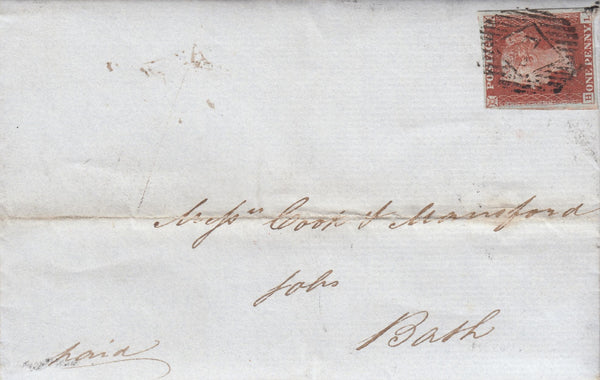 POSTAGE
ONE PENNY
H L
Messrs Cook & Mansford
Bath
paid